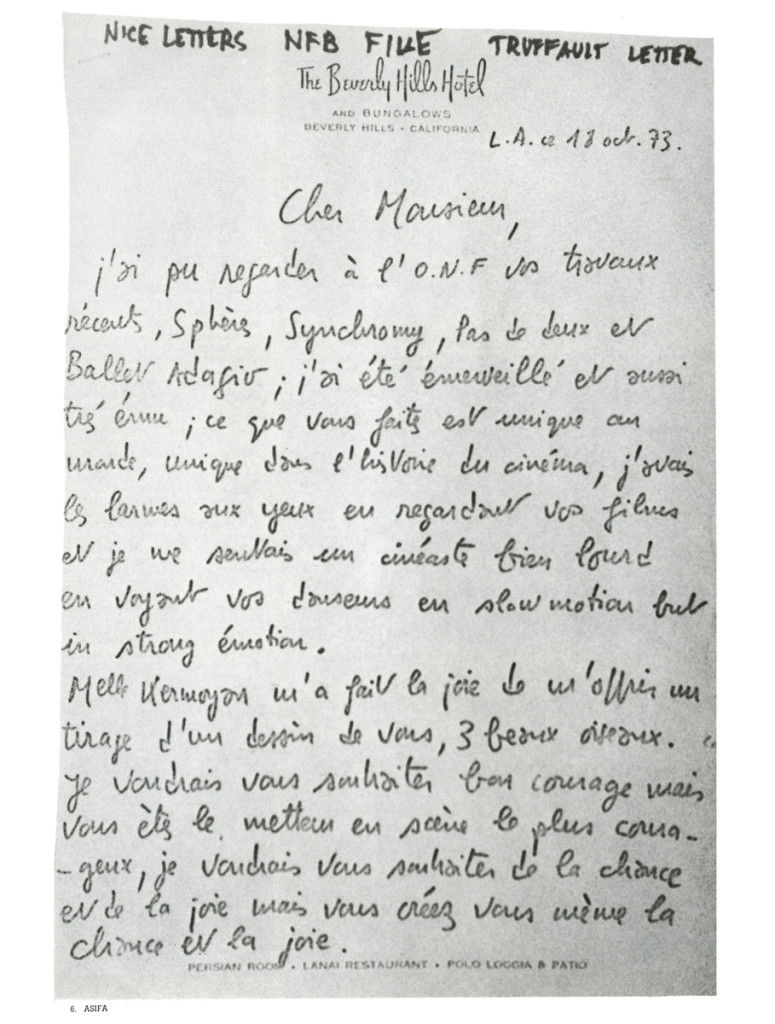 NICE LETTERS NFB FILE TRUFFAULT LETTER
The Beverly Hills Hotel
AND BUNGALOWS
BEVERLY HILLS · CALIFORNIA
L.A. ce 18 oct. 73.
Cher Monsieur,
j'ai pu regarder à l'O.N.F vos travaux
récents, Sphères, Synchromy, Pas de deux et
Ballet Adagio ; j'ai été émerveillé et aussi
très ému ; ce que vous faites est unique au
monde, unique dans l'histoire du cinéma, j'avais
les larmes aux yeux en regardant vos films
et je me sentais un cinéaste bien lourd
en voyant vos danseurs en slow motion but
in strong émotion.
Melle Kermoyan m'a fait la joie de m'offrir un
tirage d'un dessin de vous, 3 beaux oiseaux.
Je voudrais vous souhaiter bon courage mais
vous êtes le metteur en scène le plus coura-
-geux, je voudrais vous souhaiter de la chance
et de la joie mais vous créez vous même la
chance et la joie.
PERSIAN ROOM · LANAI RESTAURANT · POLO LOGGIA & PATIO
6. ASIFA